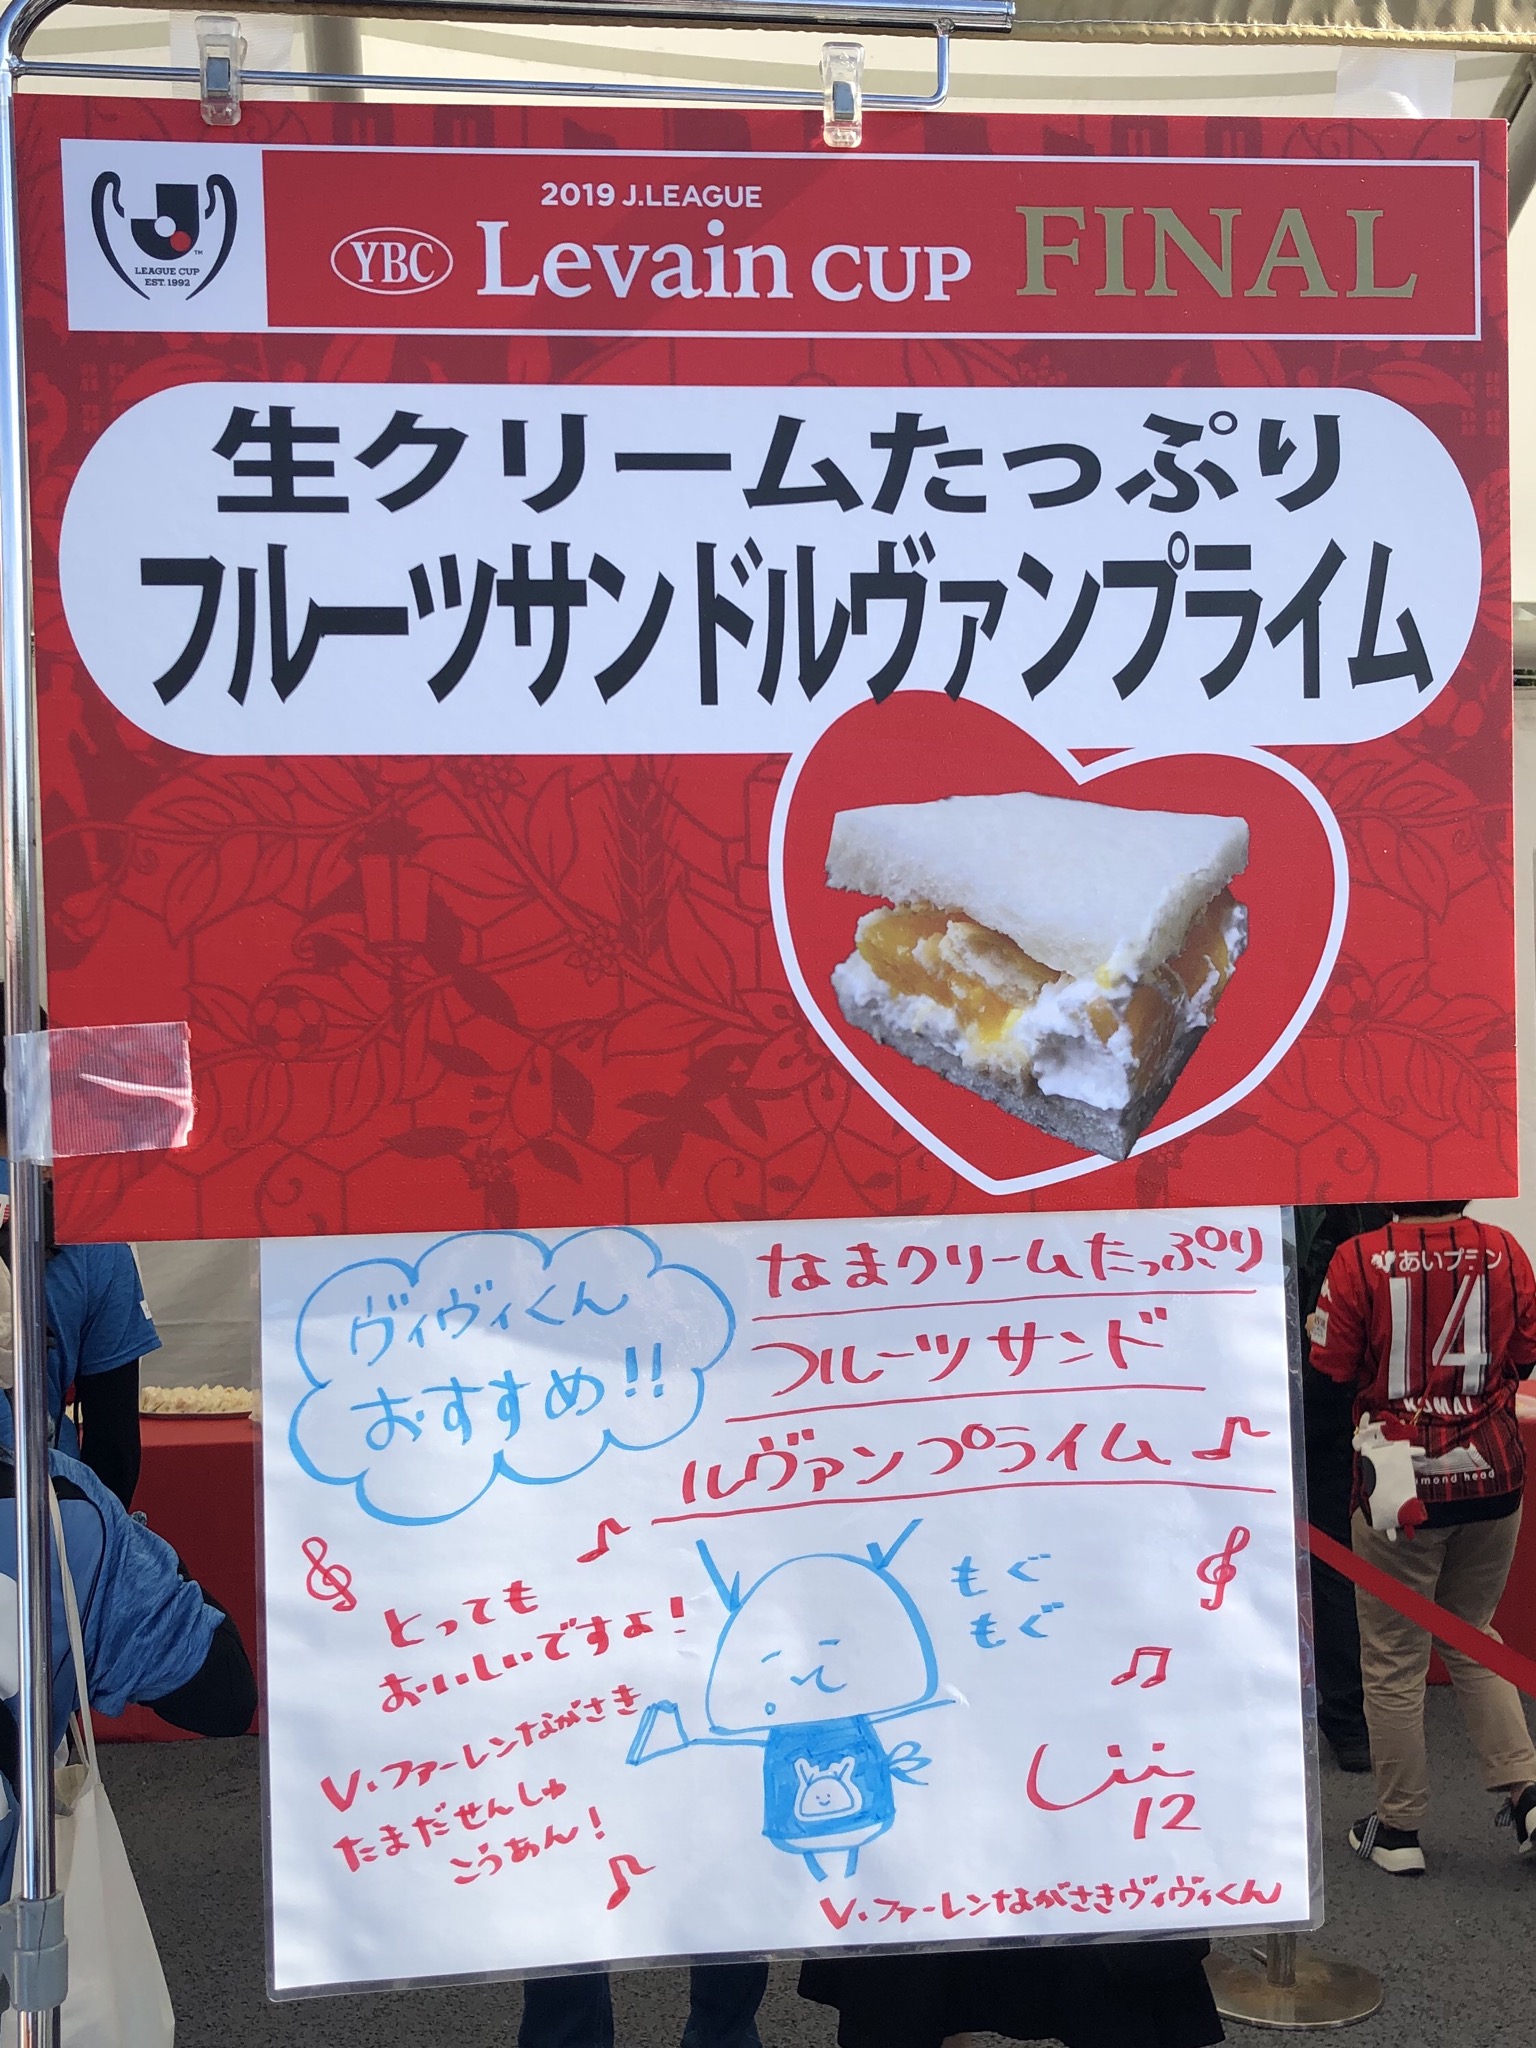 LEAGUE CUP
EST. 1992
2019 J.LEAGUE
YBC Levain CUP FINAL
生クリームたっぷり
フルーツサンドルヴァンプライム
ヴィヴィくん
おすすめ!!
なまクリームたっぷり
フルーツサンド
ルヴァンプライム♪
とっても
おいしいですよ!
もぐ
もぐ
V・ファーレンながさき
たまだせんしゅ
こうあん!
12
V・ファーレンながさきヴィヴィくん
あいプラン
14
KOMAI